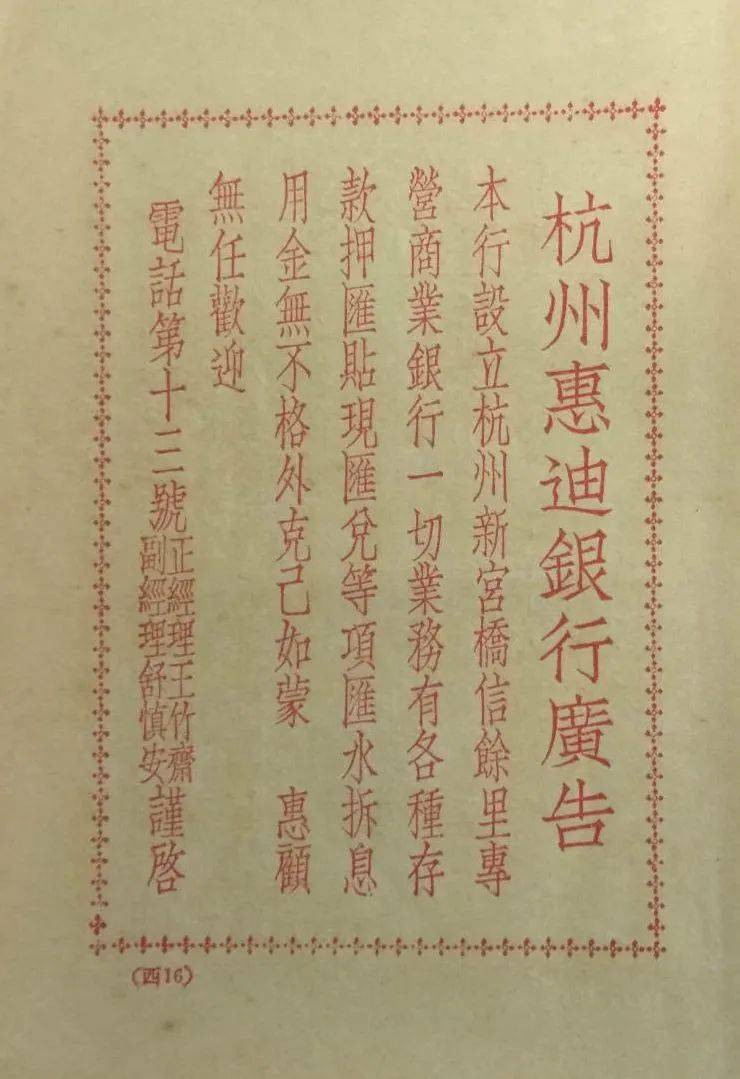 杭州惠迪銀行廣告
本行設立杭州新宮橋信餘里專
營商業銀行一切業務有各種存
款押匯貼現匯兌等項匯水拆息
用金無不格外克己如蒙　惠顧
無任歡迎
電話第十三號
正經理王竹齋
副經理舒慎安
謹啓
(西16)